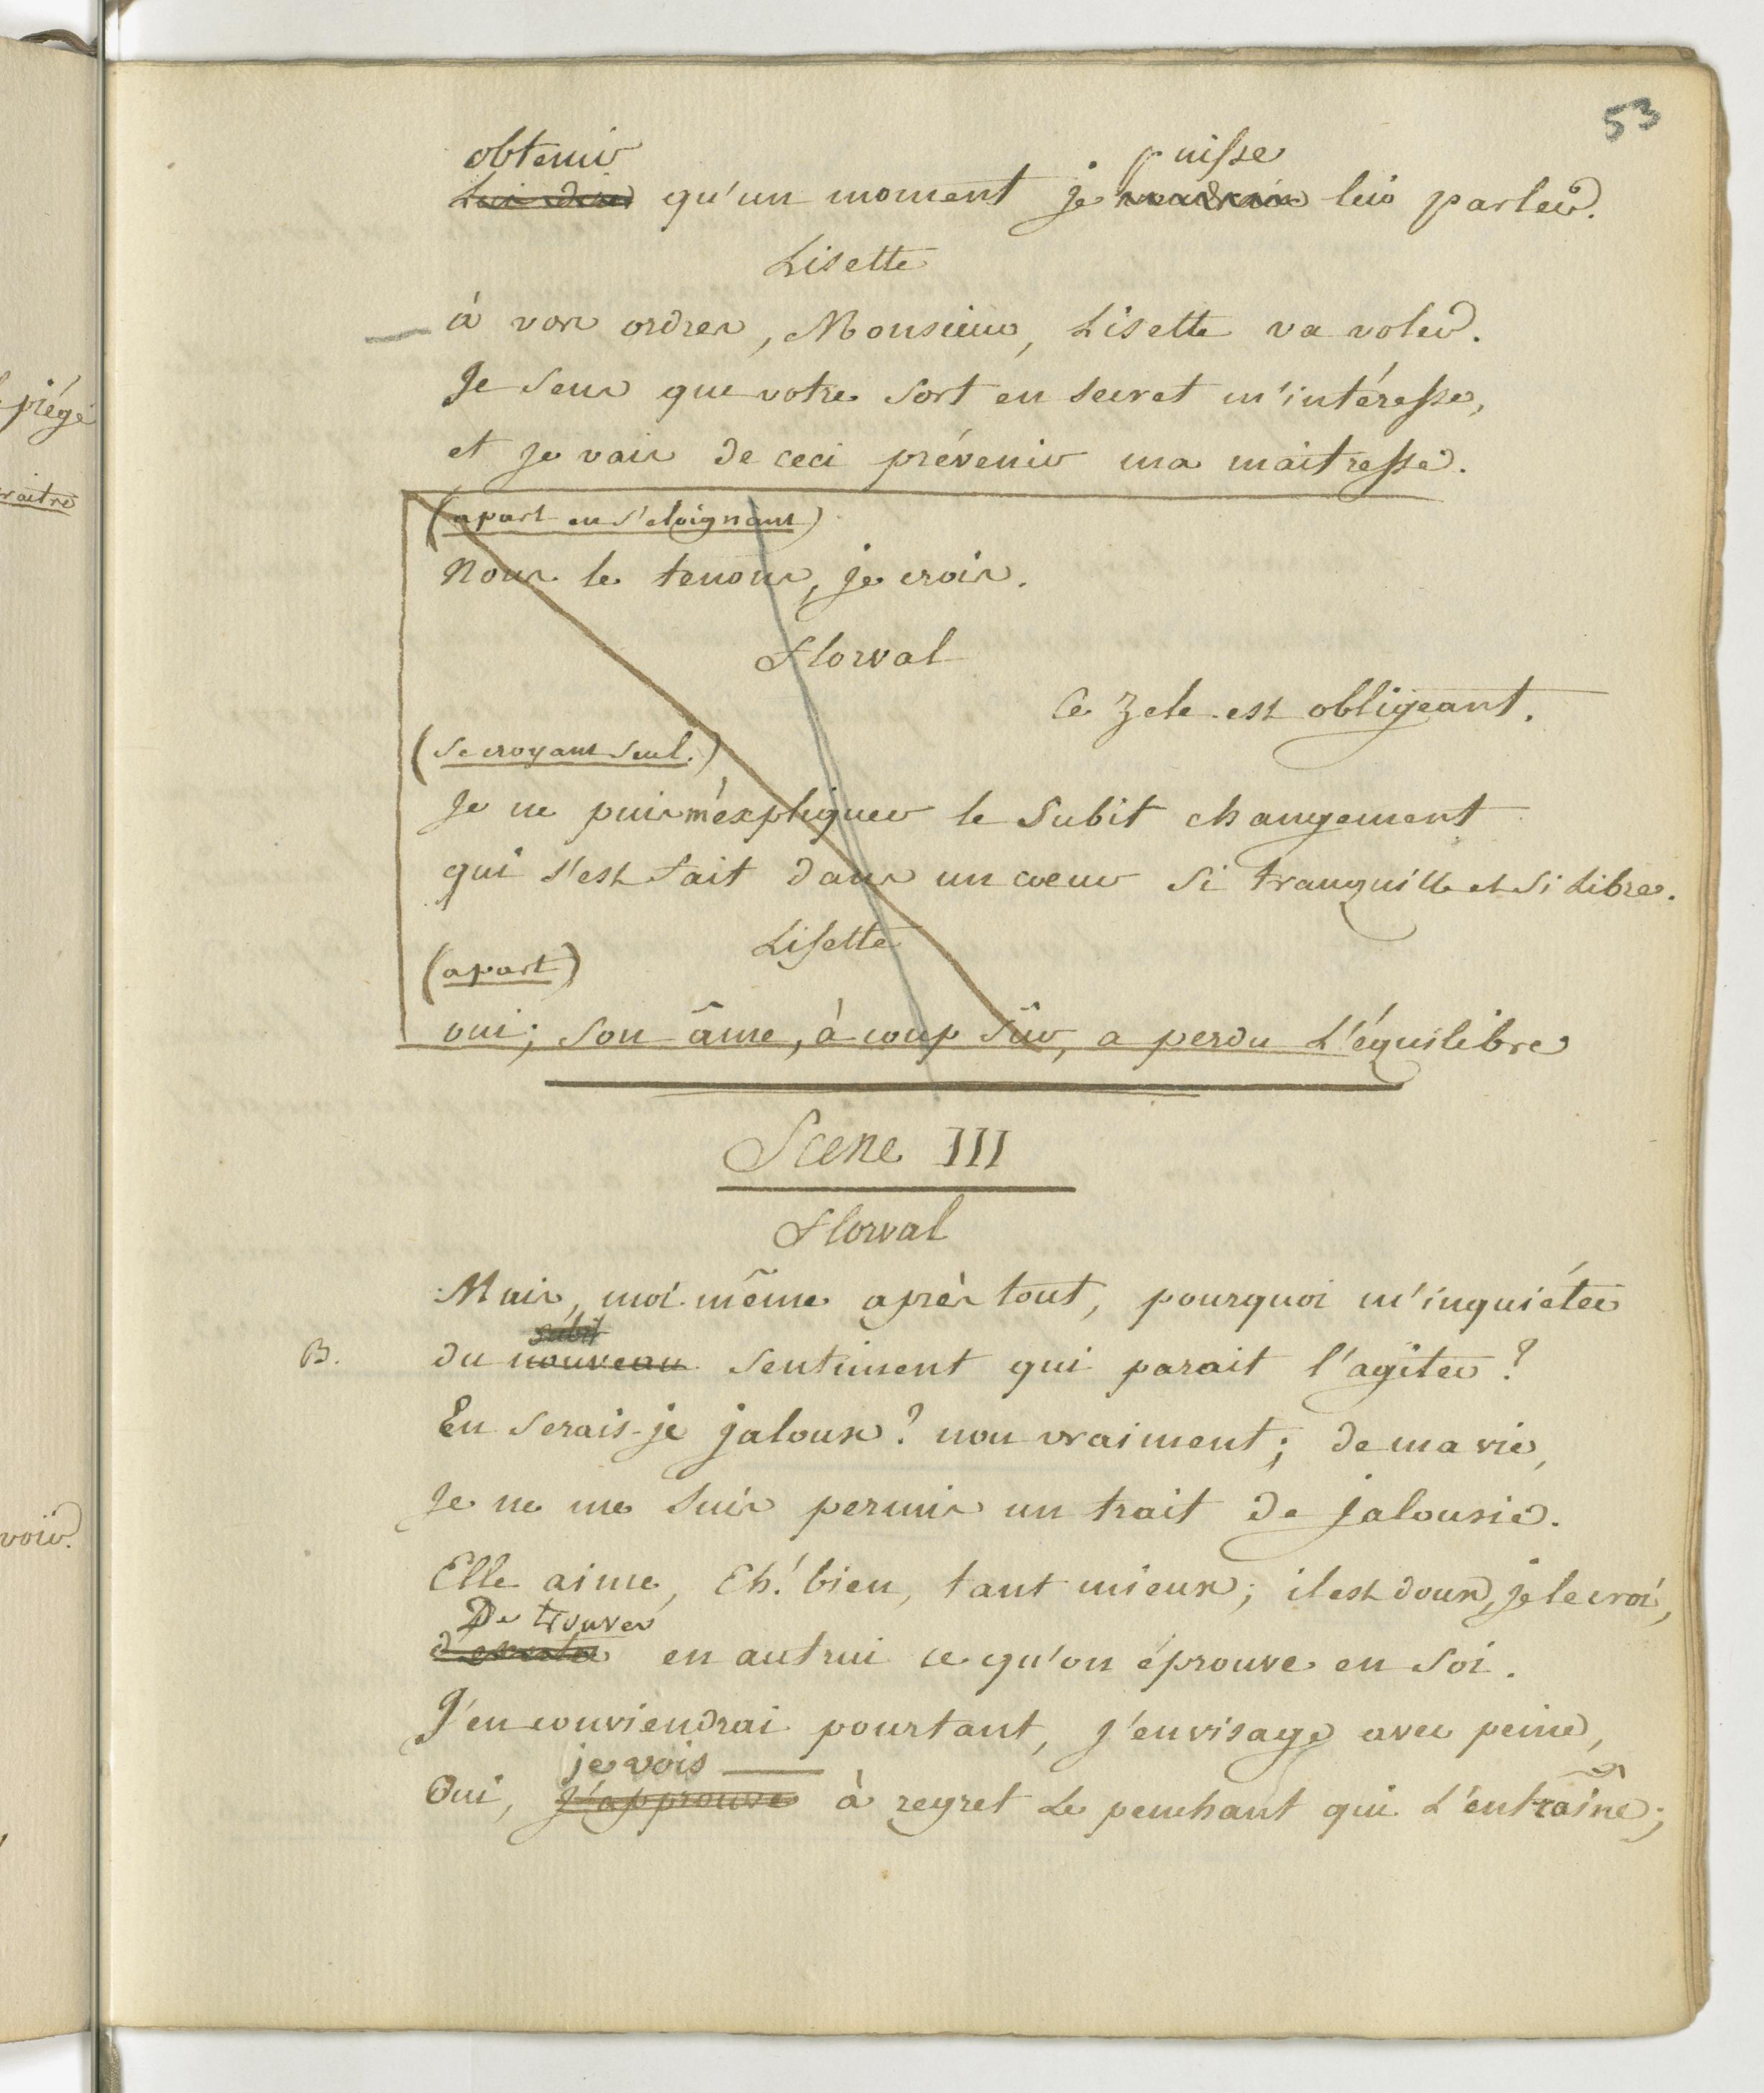 53
piégé
raitre
voir.
obtenir puisse
Lui dire qu'un moment je voudrais lui parler.
Lisette
à vos ordres, Monsieur, Lisette va voler.
Je sens que votre sort en secret m'intéresse,
et je vais de ceci prévenir ma maitresse.
(apart en s'eloignant)
Nous le tenons, je crois.
Florval
Ce zele est obligeant.
(se croyant seul.)
Je ne puis m'expliquer le subit changement
qui s'est fait dans un coeur si tranquille et si libre.
Lisette
(apart)
oui; son âme, à coup sûr, a perdu l'équilibre
Scene III
Florval
Mais, moi-même après tout, pourquoi m'inquiéter
subit
B. du nouveau sentiment qui parait l'agiter?
En serais-je jaloux? non vraiment; de ma vie,
Je ne me suis permis un trait de jalousie.
Elle aime, Eh! bien, tant mieux; il est doux, je le croi,
De trouver
en autrui ce qu'on éprouve en soi.
J'en conviendrai pourtant, j'envisage avec peine,
je vois
Oui, j'approuve à regret le penchant qui l'entraîne;